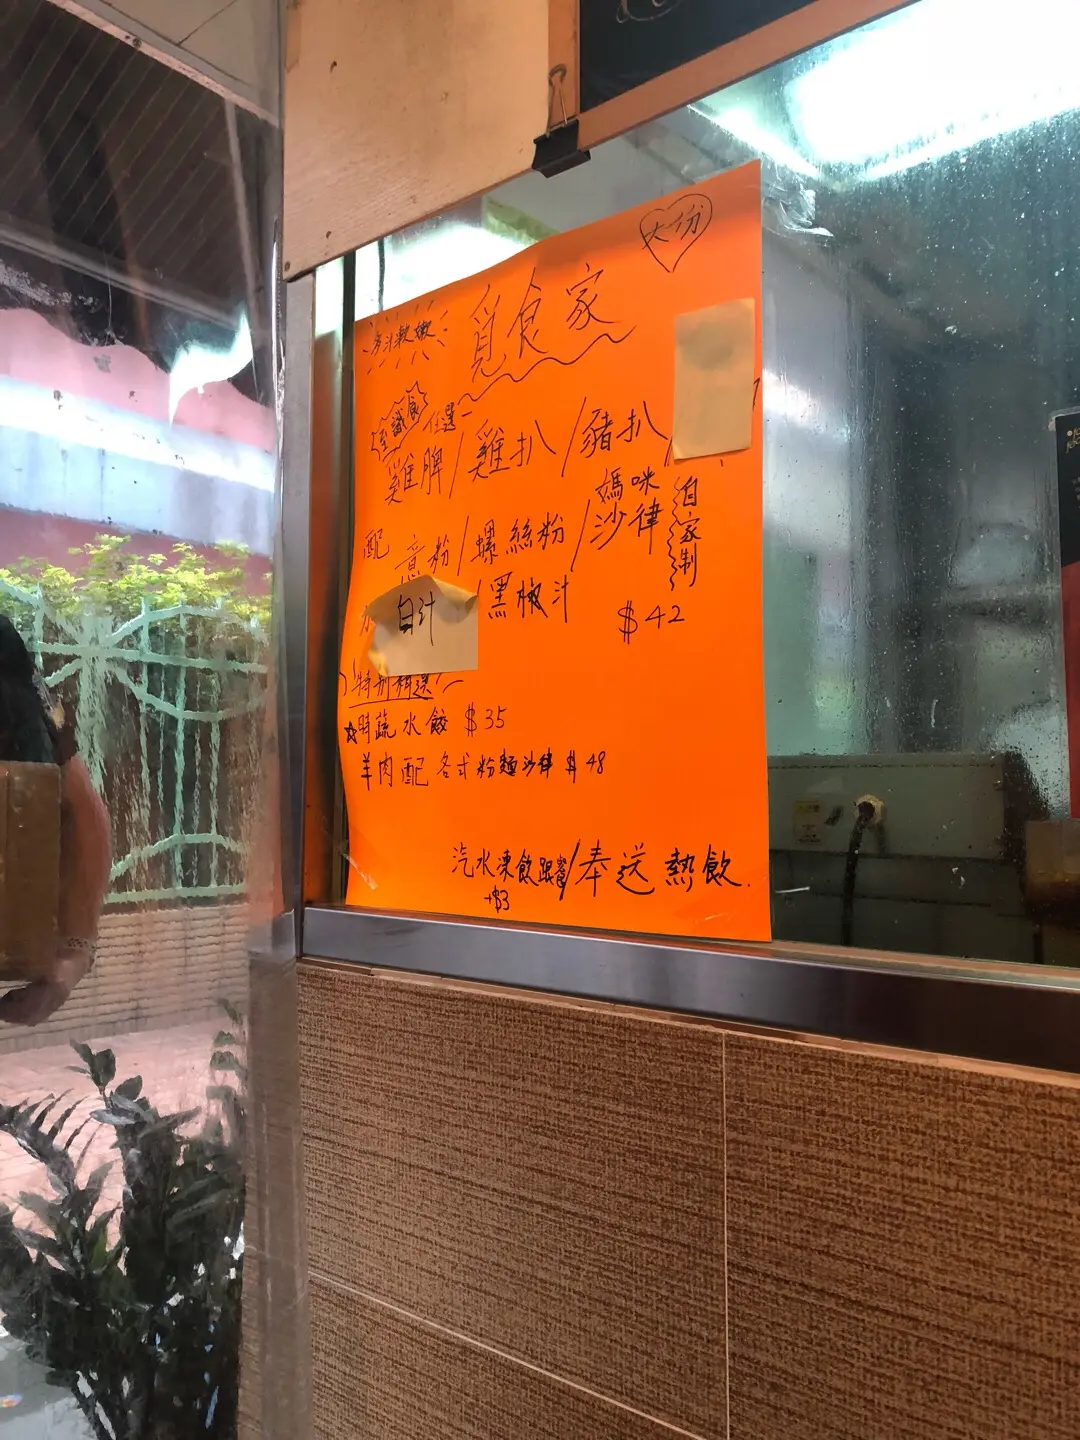 大份
覓食家
多汁軟嫩
任選一
雞脾/雞扒/豬扒/
配 意粉/螺絲粉/媽咪沙律
自家制
白汁/黑椒汁
$42
特別精選
☆時蔬水餃 $35
羊肉配各式粉麵沙律 $48
汽水凍飲跟餐/奉送熱飲.
+$3